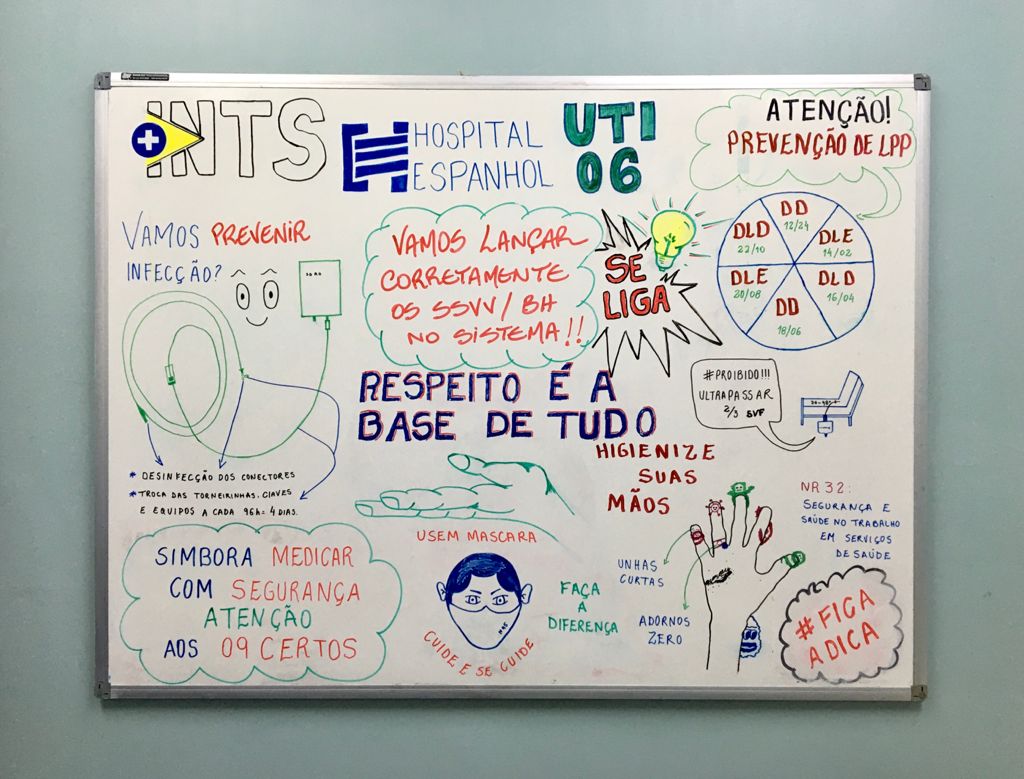 INTS
HOSPITAL
ESPANHOL
UTI
06
ATENÇÃO!
PREVENÇÃO DE LPP
VAMOS PREVENIR
INFECÇÃO?
VAMOS LANÇAR
CORRETAMENTE
OS SSVV/ BH
NO SISTEMA!!
SE
LIGA
DD
12/24
DLE
14/02
DLD
16/04
DD
18/06
DLE
20/08
DLD
22/10
RESPEITO É A
BASE DE TUDO
#PROIBIDO!!!
ULTRAPASSAR
2/3 SVF
30-45º
* DESINFECÇÃO DOS CONECTORES
* TROCA DAS TORNEIRINHAS. CLAVES
E EQUIPOS A CADA 96H= 4 DIAS.
HIGIENIZE
SUAS
MÃOS
NR 32:
SEGURANÇA E
SAÚDE NO TRABALHO
EM SERVIÇOS
DE SAÚDE
UNHAS
CURTAS
ADORNOS
ZERO
SIMBORA MEDICAR
COM SEGURANÇA
ATENÇÃO
AOS 09 CERTOS
USEM MASCARA
N95
CUIDE E SE CUIDE
FAÇA
A
DIFERENÇA
#FICA
A DICA